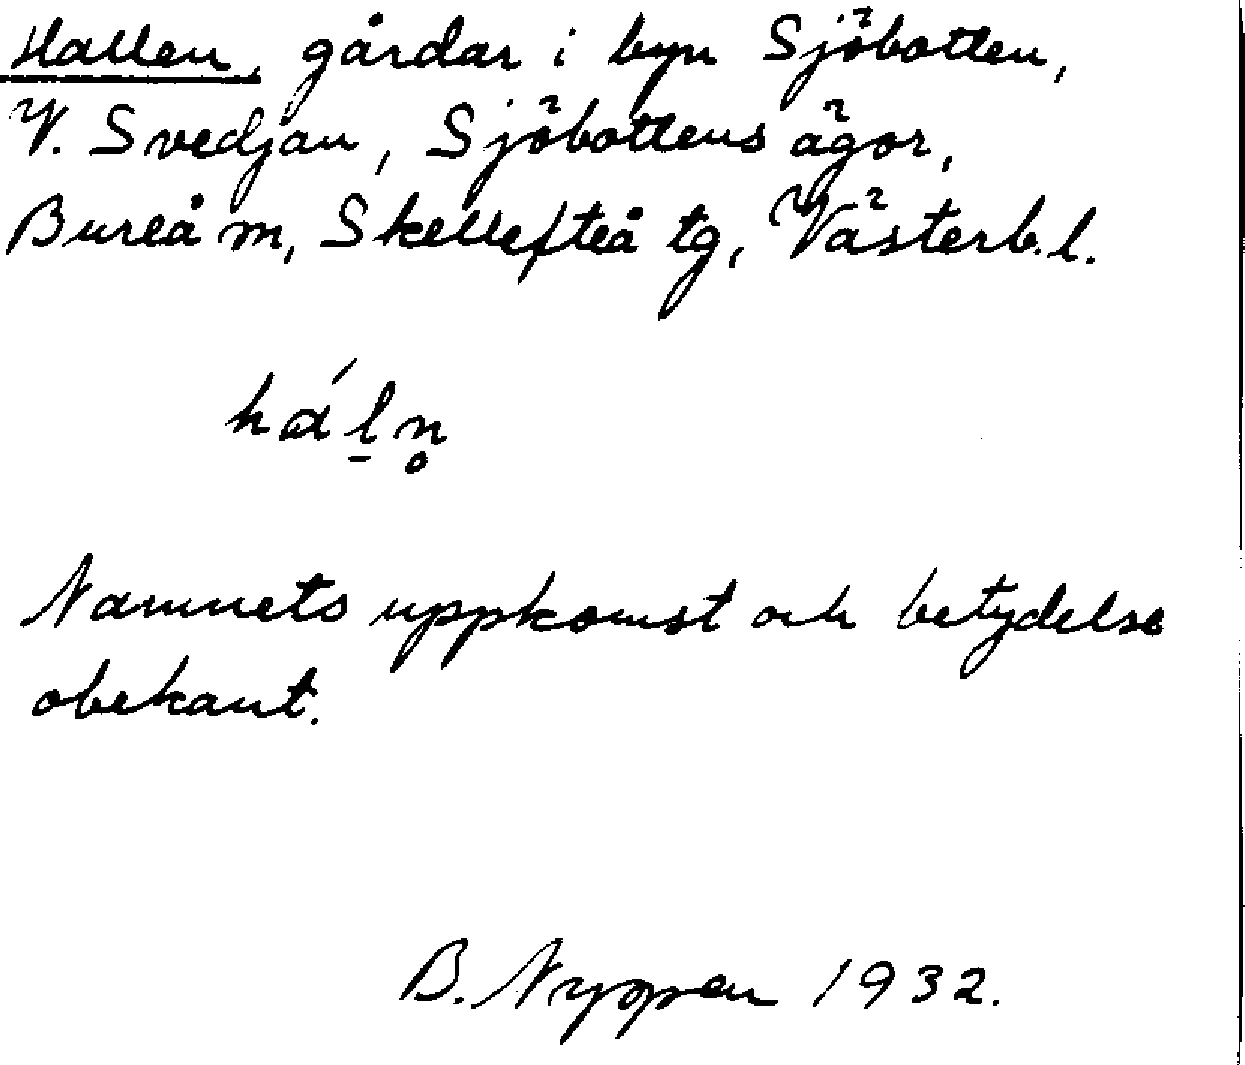 Hallen, gårdar i byn Sjöbotten,
V. Svedjan, Sjöbottens ägor,
Bureå m, Skellefteå tg, Västerb.l.
há l̠n̥
Namnets uppkomst och betydelse
obekant.
B. Nyppen 1932.